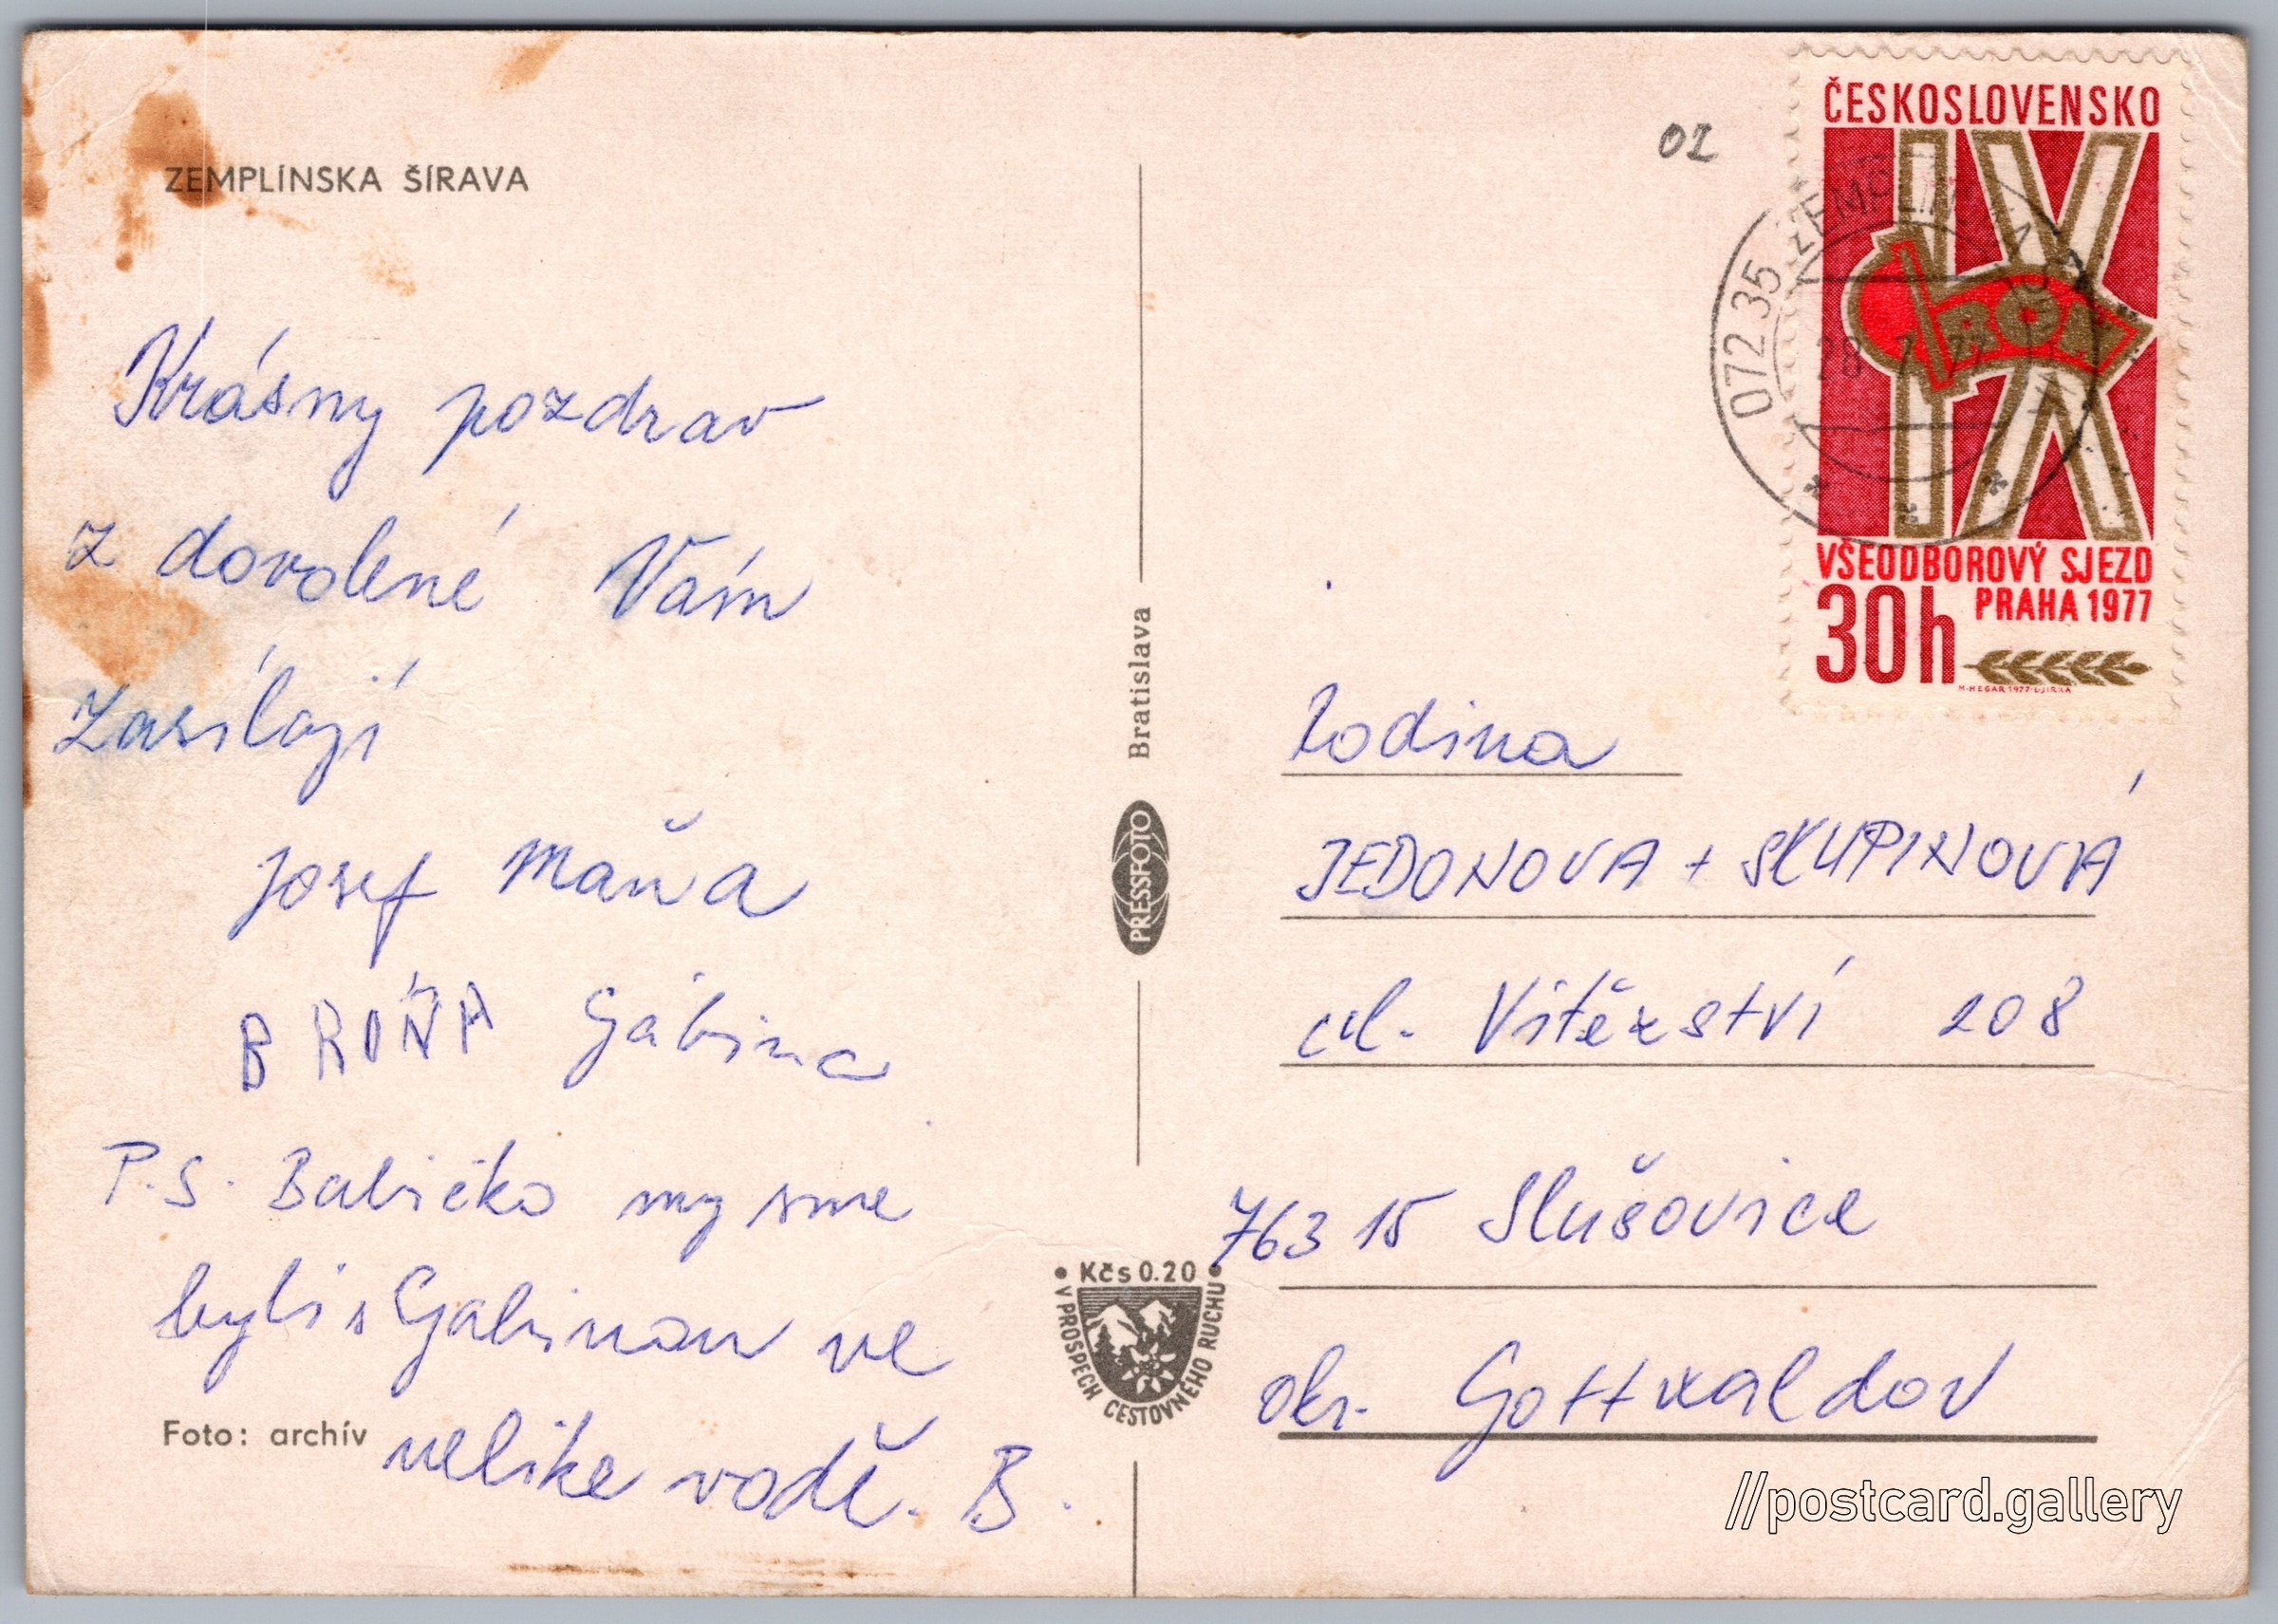 ZEMPLÍNSKA ŠÍRAVA
Krásny pozdrav
z dovolené Vám
Zasílají
Josef Máňa
BROŇA Gábina
P.S. Babičko my sme
byli s Gabinou ve
velike vodě. B.
Foto: archív
Bratislava
PRESSFOTO
• Kčs 0.20 •
V PROSPECH CESTOVNÉHO RUCHU
02
ČESKOSLOVENSKO
IX
ROH
VŠEODBOROVÝ SJEZD
PRAHA 1977
30h
M·HEGAR·1977·L·JIRKA
072 35 ZEMPLÍN
28. 7. 77
rodina
JEDONOVA + SKUPINOVÁ
ul. Vitězství 208
763 15 Slušovice
okr. Gottwaldov
//postcard.gallery